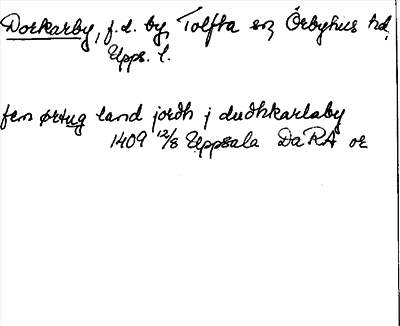 Dorkarby, f.d. by, Tolfta sn, Örbyhus hd,
Upps. l.
fem ørtug land jordh j dudhkarlaby
1409 12/8 Uppsala DaRA or